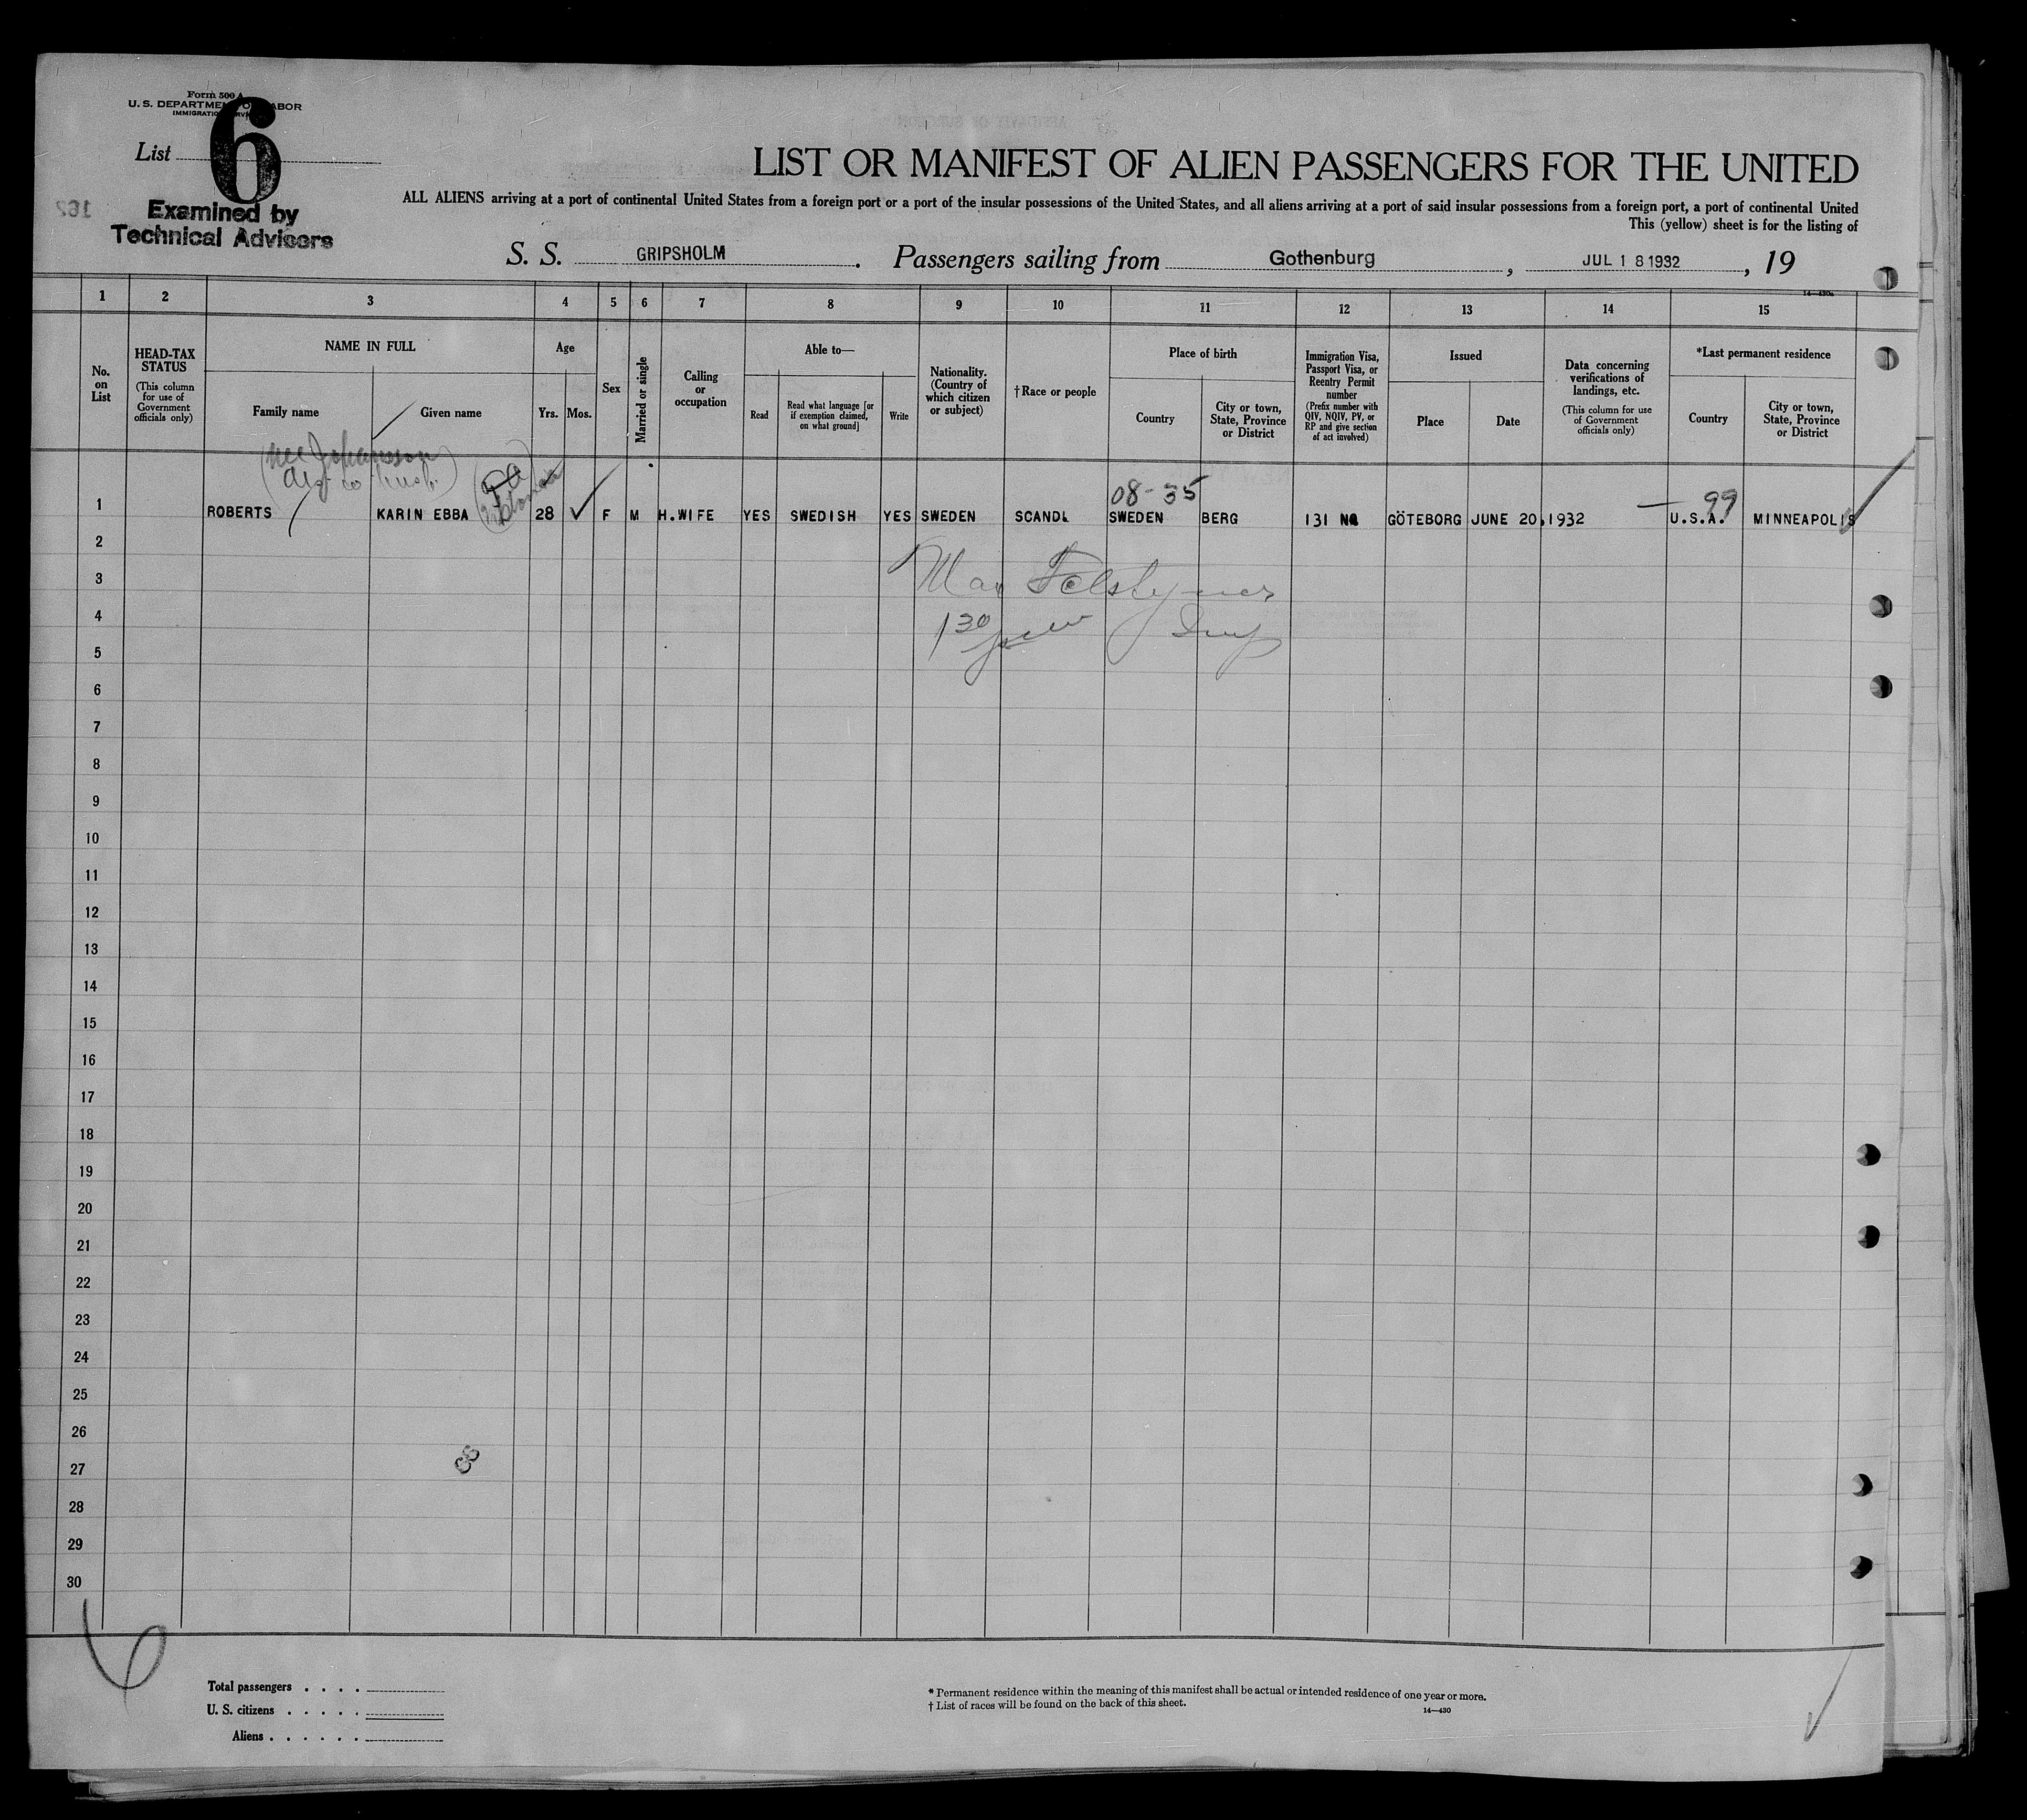 Form 500 A
U. S. DEPARTMENT OF LABOR
IMMIGRATION SERVICE
List 6
Examined by
Technical Advisors
LIST OR MANIFEST OF ALIEN PASSENGERS FOR THE UNITED
ALL ALIENS arriving at a port of continental United States from a foreign port or a port of the insular possessions of the United States, and all aliens arriving at a port of said insular possessions from a foreign port, a port of continental United
This (yellow) sheet is for the listing of
S. S. GRIPSHOLM. Passengers sailing from Gothenburg, JUL 18 1932, 19
14—430a
1 2 3 4 5 6 7 8 9 10 11 12 13 14 15
No. on List
HEAD-TAX STATUS
(This column for use of Government officials only)
NAME IN FULL
Family name Given name
Age
Yrs. Mos.
Sex
Married or single
Calling or occupation
Able to—
Read
Read what language [or if exemption claimed, on what ground]
Write
Nationality. (Country of which citizen or subject)
† Race or people
Place of birth
Country
City or town, State, Province or District
Immigration Visa, Passport Visa, or Reentry Permit number
(Prefix number with QIV, NQIV, PV, or RP and give section of act involved)
Issued
Place Date
Data concerning verifications of landings, etc.
(This column for use of Government officials only)
*Last permanent residence
Country
City or town, State, Province or District
(nee Johansson
08-35
99
1 ROBERTS KARIN EBBA 28 F M H.WIFE YES SWEDISH YES SWEDEN SCANDL SWEDEN BERG 131 NQ GÖTEBORG JUNE 20,1932 U.S.A. MINNEAPOLIS
2
3
4
5
6
7
8
9
10
11
12
13
14
15
16
17
18
19
20
21
22
23
24
25
26
27
28
29
30
6
Total passengers
U. S. citizens
Aliens
* Permanent residence within the meaning of this manifest shall be actual or intended residence of one year or more.
† List of races will be found on the back of this sheet.
14—430